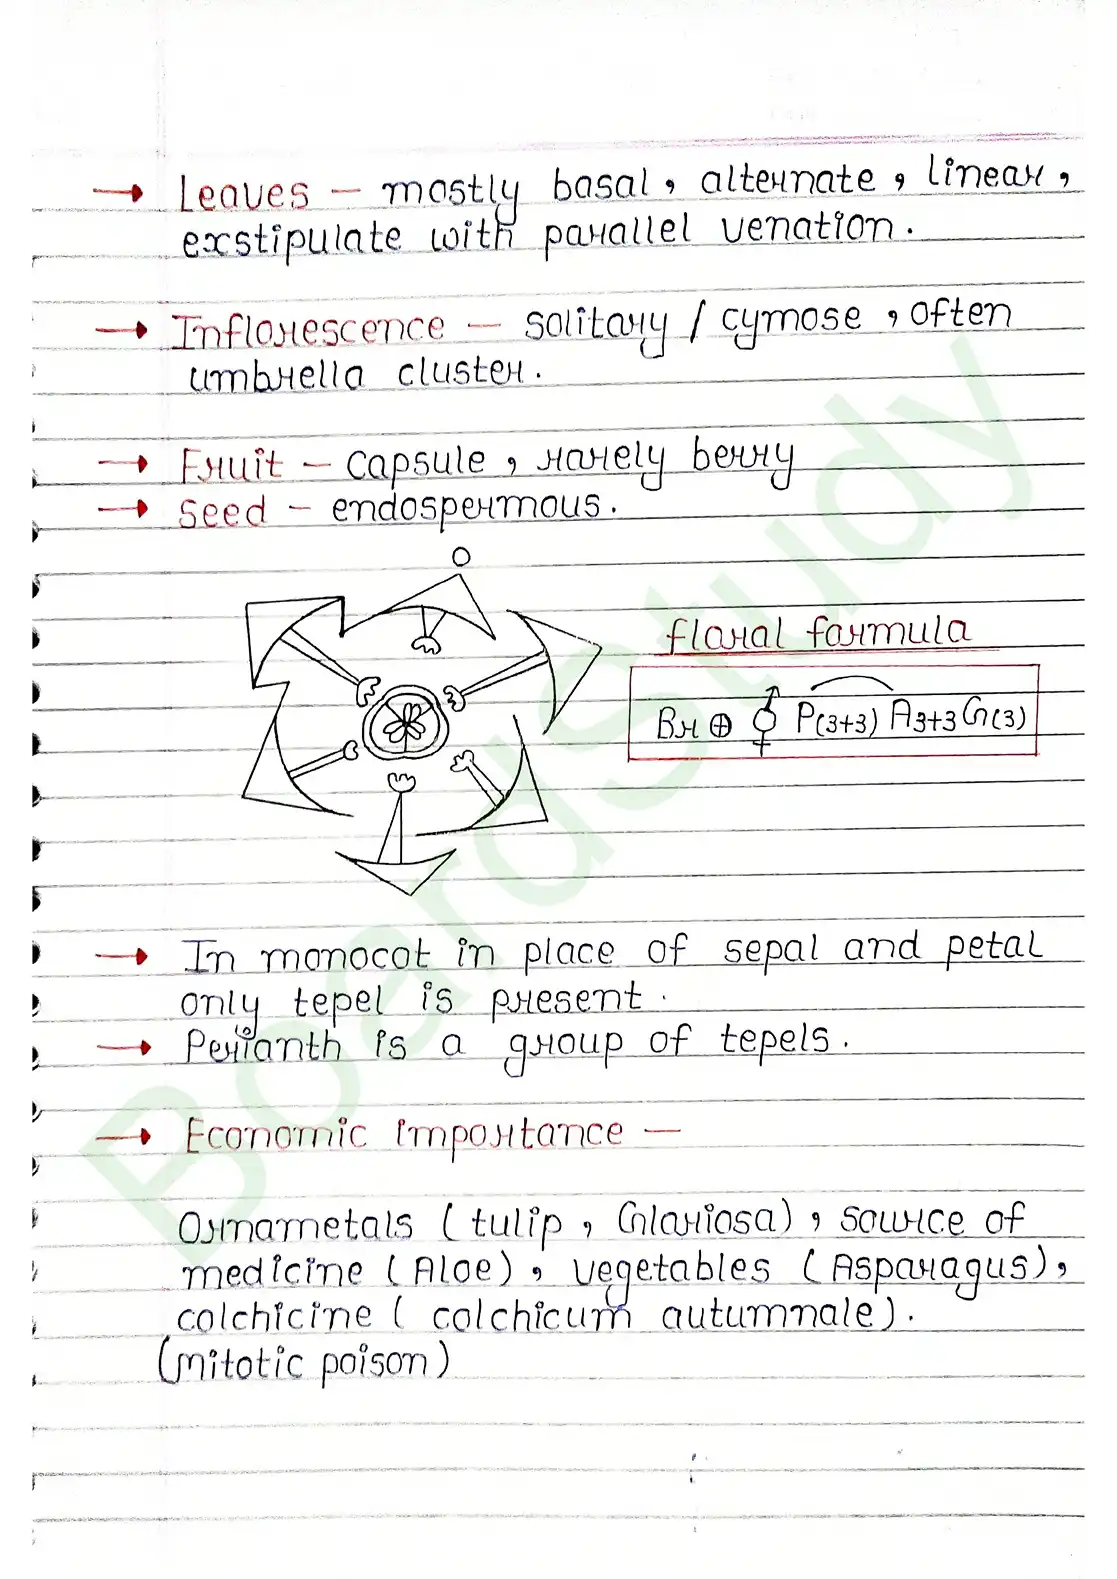 → Leaves – mostly basal, alternate, linear,
exstipulate with parallel venation.
→ Inflorescence – solitary / cymose, often
umbrella cluster.
→ Fruit – capsule, rarely berry
→ Seed – endospermous.
floral formula
Br ⊕ ⚥ P(3+3) A3+3 G(3)
→ In monocot in place of sepal and petal
only tepel is present.
→ Perianth is a group of tepels.
→ Economic importance –
Ornametals (tulip, Glariosa), source of
medicine (Aloe), vegetables (Asparagus),
colchicine (colchicum autumnale).
(mitotic poison)
BoardStudy